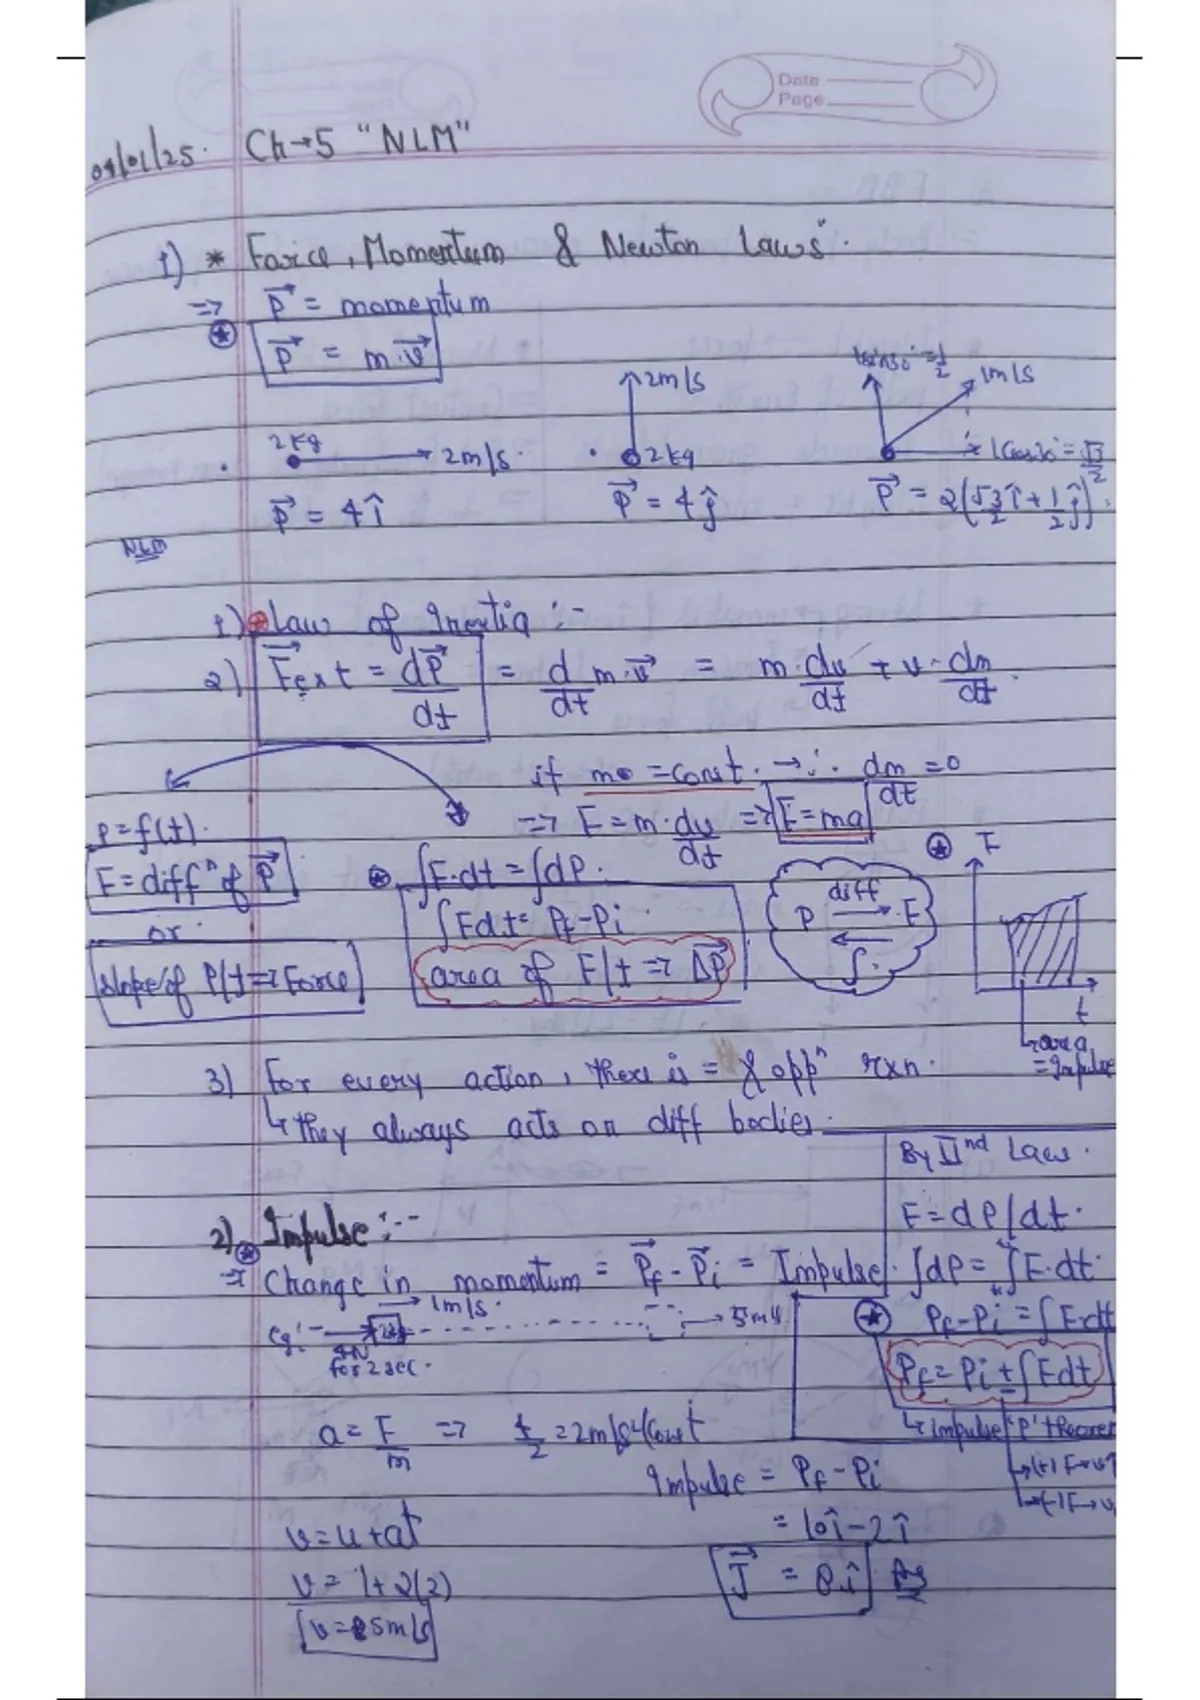 Date
Page
04/01/25. Ch→5 "NLM"
1) * Force, Momentum & Newton Laws".
=> P⃗ = momentum
P⃗ = m.v⃗
2kg → 2m/s.
P⃗ = 4î
↑2m/s
2kg
P⃗ = 4ĵ
1sin30° = 1/2
1m/s
1Cos30° = √3/2
P⃗ = 2(√3/2 î + 1/2 ĵ).
NLM
1) Law of Inertia :-
2) F⃗ext = dP⃗/dt = d/dt m.v⃗ = m.dv/dt + v.dm/dt.
if m = const. → ∴ dm/dt = 0
=> F = m.dv/dt => F=ma
P=f(t).
F = diffⁿ of P⃗
or
slope of P/t => Force
∫F.dt = ∫dP.
∫Fdt = Pf-Pi
area of F/t => ΔP⃗
P diff → F
← ∫.
F
t
↳ area
= Impulse
3) For every action, there is = & oppⁿ rxn.
↳ they always acts on diff bodies.
2) Impulse :--
=> Change in momentum = P⃗f - P⃗i = Impulse.
eg:- → 2kg → 1m/s. → 5m/s
4N
for 2 sec.
a = F/m => 4/2 = 2m/s² (Const
v = u+at
v = 1+2(2)
v = 5m/s
Impulse = Pf - Pi
= 10î-2î
J⃗ = 8î Ans
By IInd Law.
F = dP/dt.
∫dP = ∫F.dt.
Pf-Pi = ∫F.dt
Pf = Pi ± ∫Fdt
↳ Impulse 'P' theorem
↳(+) F→v↑
↳(-) F→v